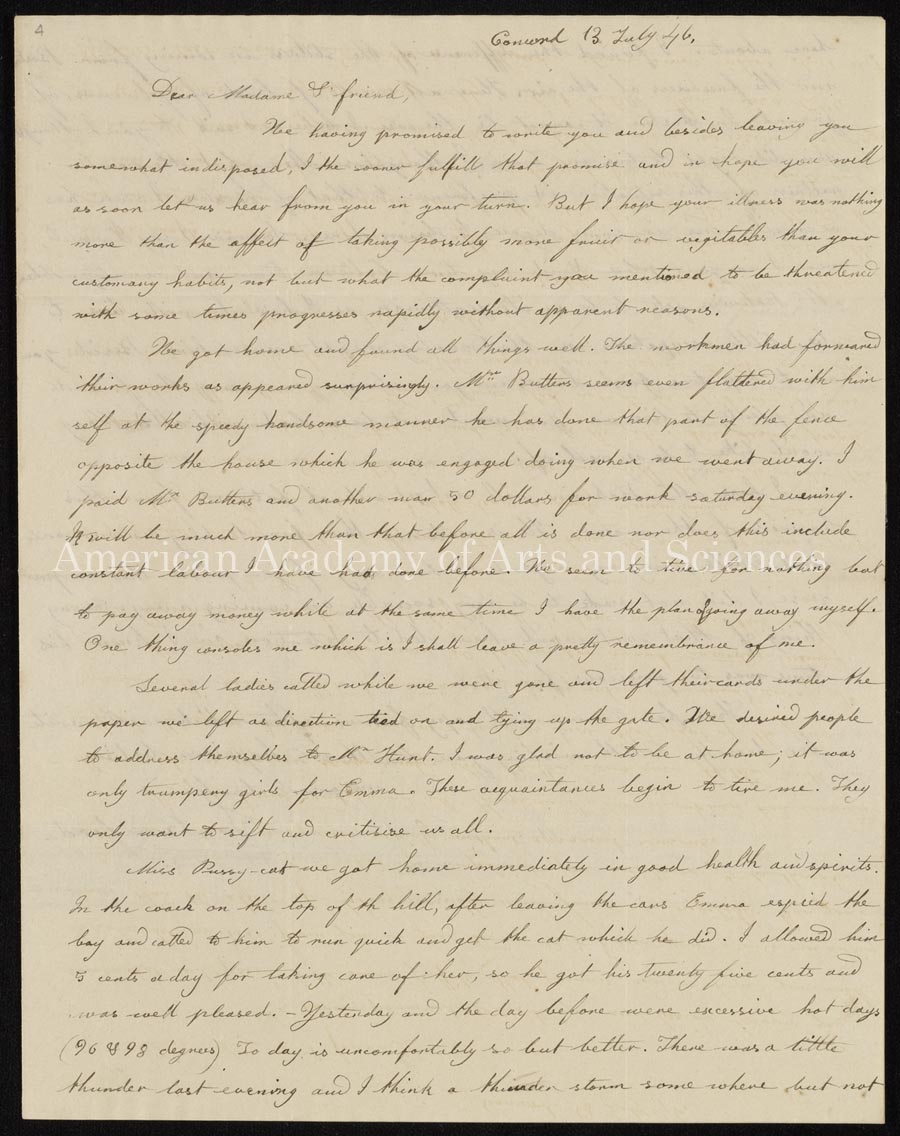 4
Concord 13 July 46.
Dear Madame & friend,
We having promised to write you and besides leaving you
somewhat indisposed, I the sooner fulfill that promise and in hope you will
as soon let us hear from you in your turn. But I hope your illness was nothing
more than the affect of taking possibly more fruit or vegitables than your
customary habits, not but what the complaint you mentioned to be threatened
with some times progresses rapidly without apparent reasons.
We got home and found all things well. The workmen had forwared
their works as appeared surprisingly. Mr. Butters seems even flattered with him
self at the speedy handsome manner he has done that part of the fence
opposite the house which he was engaged doing when we went away. I
paid Mr. Butters and another man 50 dollars for work saturday evening.
It will be much more than that before all is done nor does this include
American Academy of Arts and Sciences
constant labour I have had done before. We seem to live for nothing but
to pay away money while at the same time I have the plan of going away myself.
One thing consoles me which is I shall leave a pretty remembrance of me.
Several ladies called while we were gone and left their cards under the
paper we left as direction tied on and tying up the gate. We desired people
to address themselves to Mr. Hunt. I was glad not to be at home; it was
only trumpery girls for Emma. These acquaintances begin to tire me. They
only want to sift and critisise us all.
Miss Pussy-cat we got home immediately in good health and spirits.
In the coach on the top of th hill, after leaving the cars Emma espied the
boy and called to him to run quick and get the cat which he did. I allowed him
5 cents a day for taking care of her, so he got his twenty five cents and
was well pleased. - Yesterday and the day before were excessive hot days
(96 & 98 degrees) To day is uncomfortably so but better. There was a little
thunder last evening and I think a thunder storm some where but not